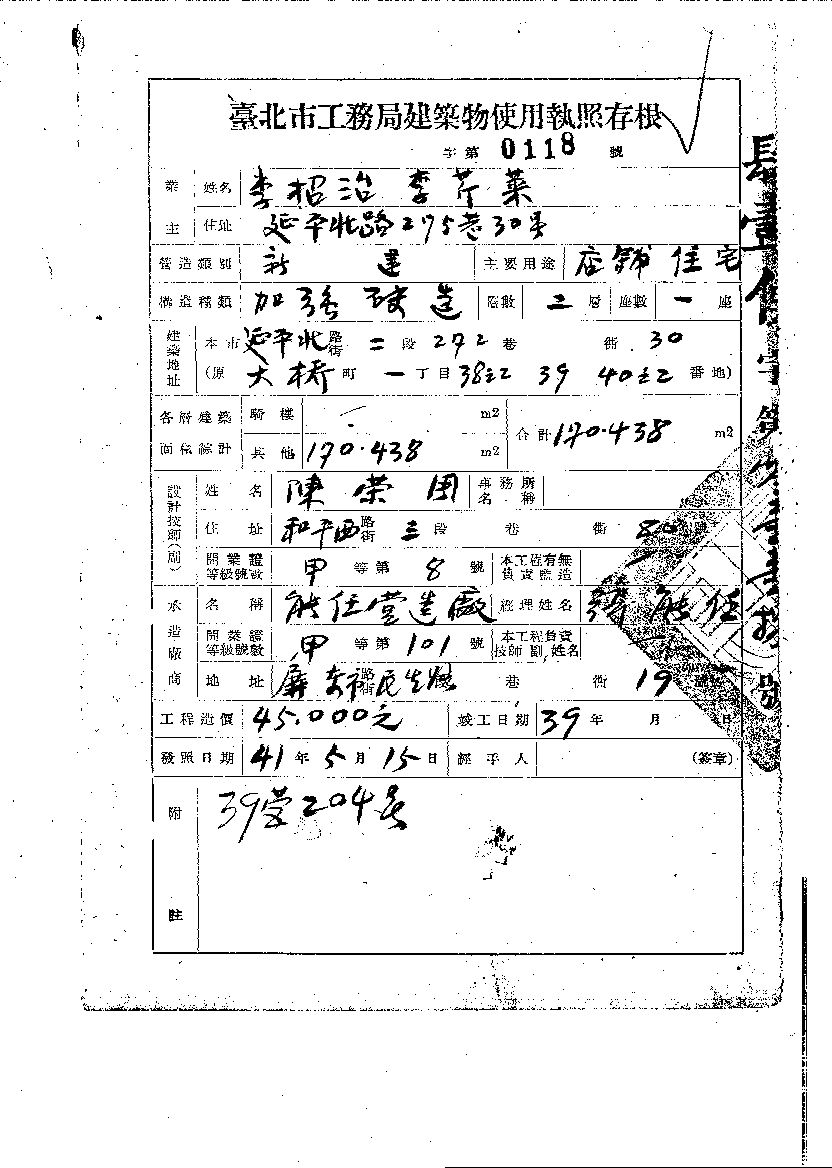 臺北市工務局建築物使用執照存根
字第 0118 號
業主 姓名 李招治 李芹萊
住址 延平北路275巷30号
營造類別 新建 主要用途 店舖住宅
構造種類 加強磚造 層數 二層 座數 一座
建築地址 本市 延平北 路街 二段 272巷 衖 30
(原 大橋町 一丁目 38之2 39 40之2 番地)
各層建築面積總計 騎樓 m2 合計 170.438 m2
其他 170.438 m2
設計技師(副) 姓名 陳榮周 事務所名稱
住址 和平西 路街 三段 巷 衖 80 號
開業證等級號數 甲等第 8 號 本工程有無負責監造
承造廠商 名稱 能任營造廠 經理姓名 能任
開業證等級號數 甲等第 101 號 本工程負責技師副姓名
地址 屏東市 路街 民生 巷 衖 19 號
工程造價 45.000元 竣工日期 39年 月 日
發照日期 41年5月15日 經手人 (簽章)
附註 39營204号